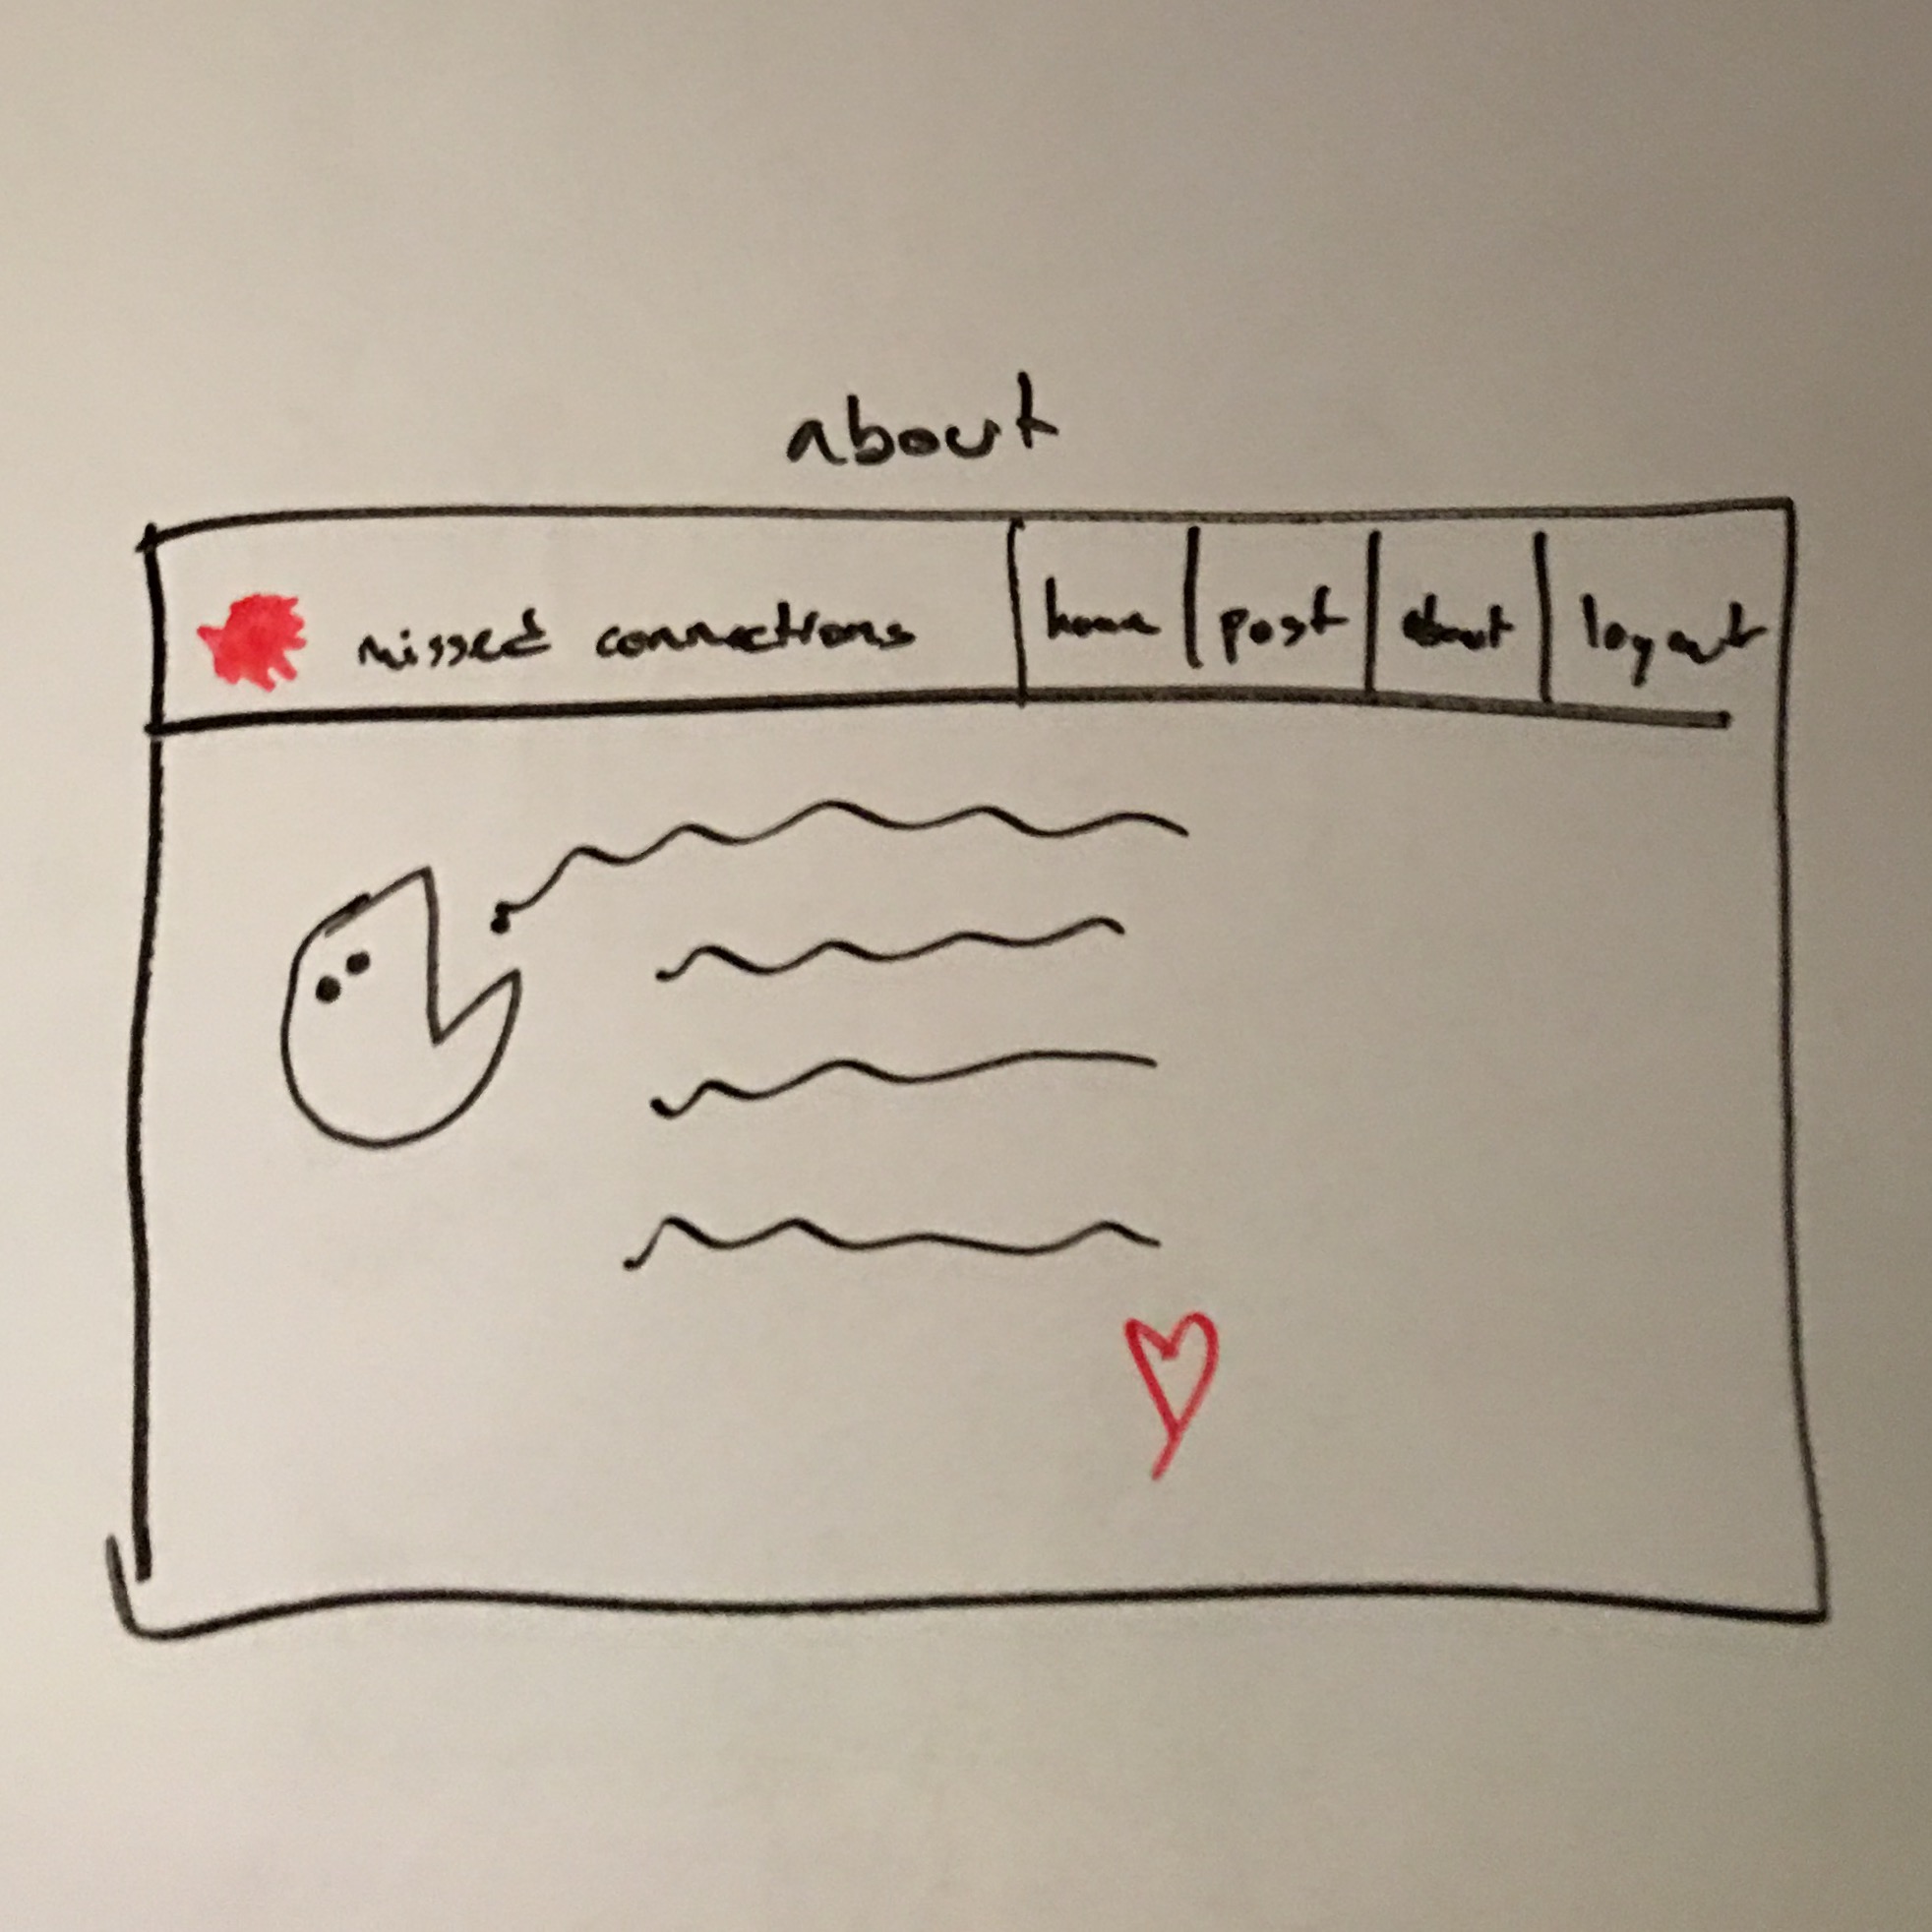 about
missed connections home post about logout